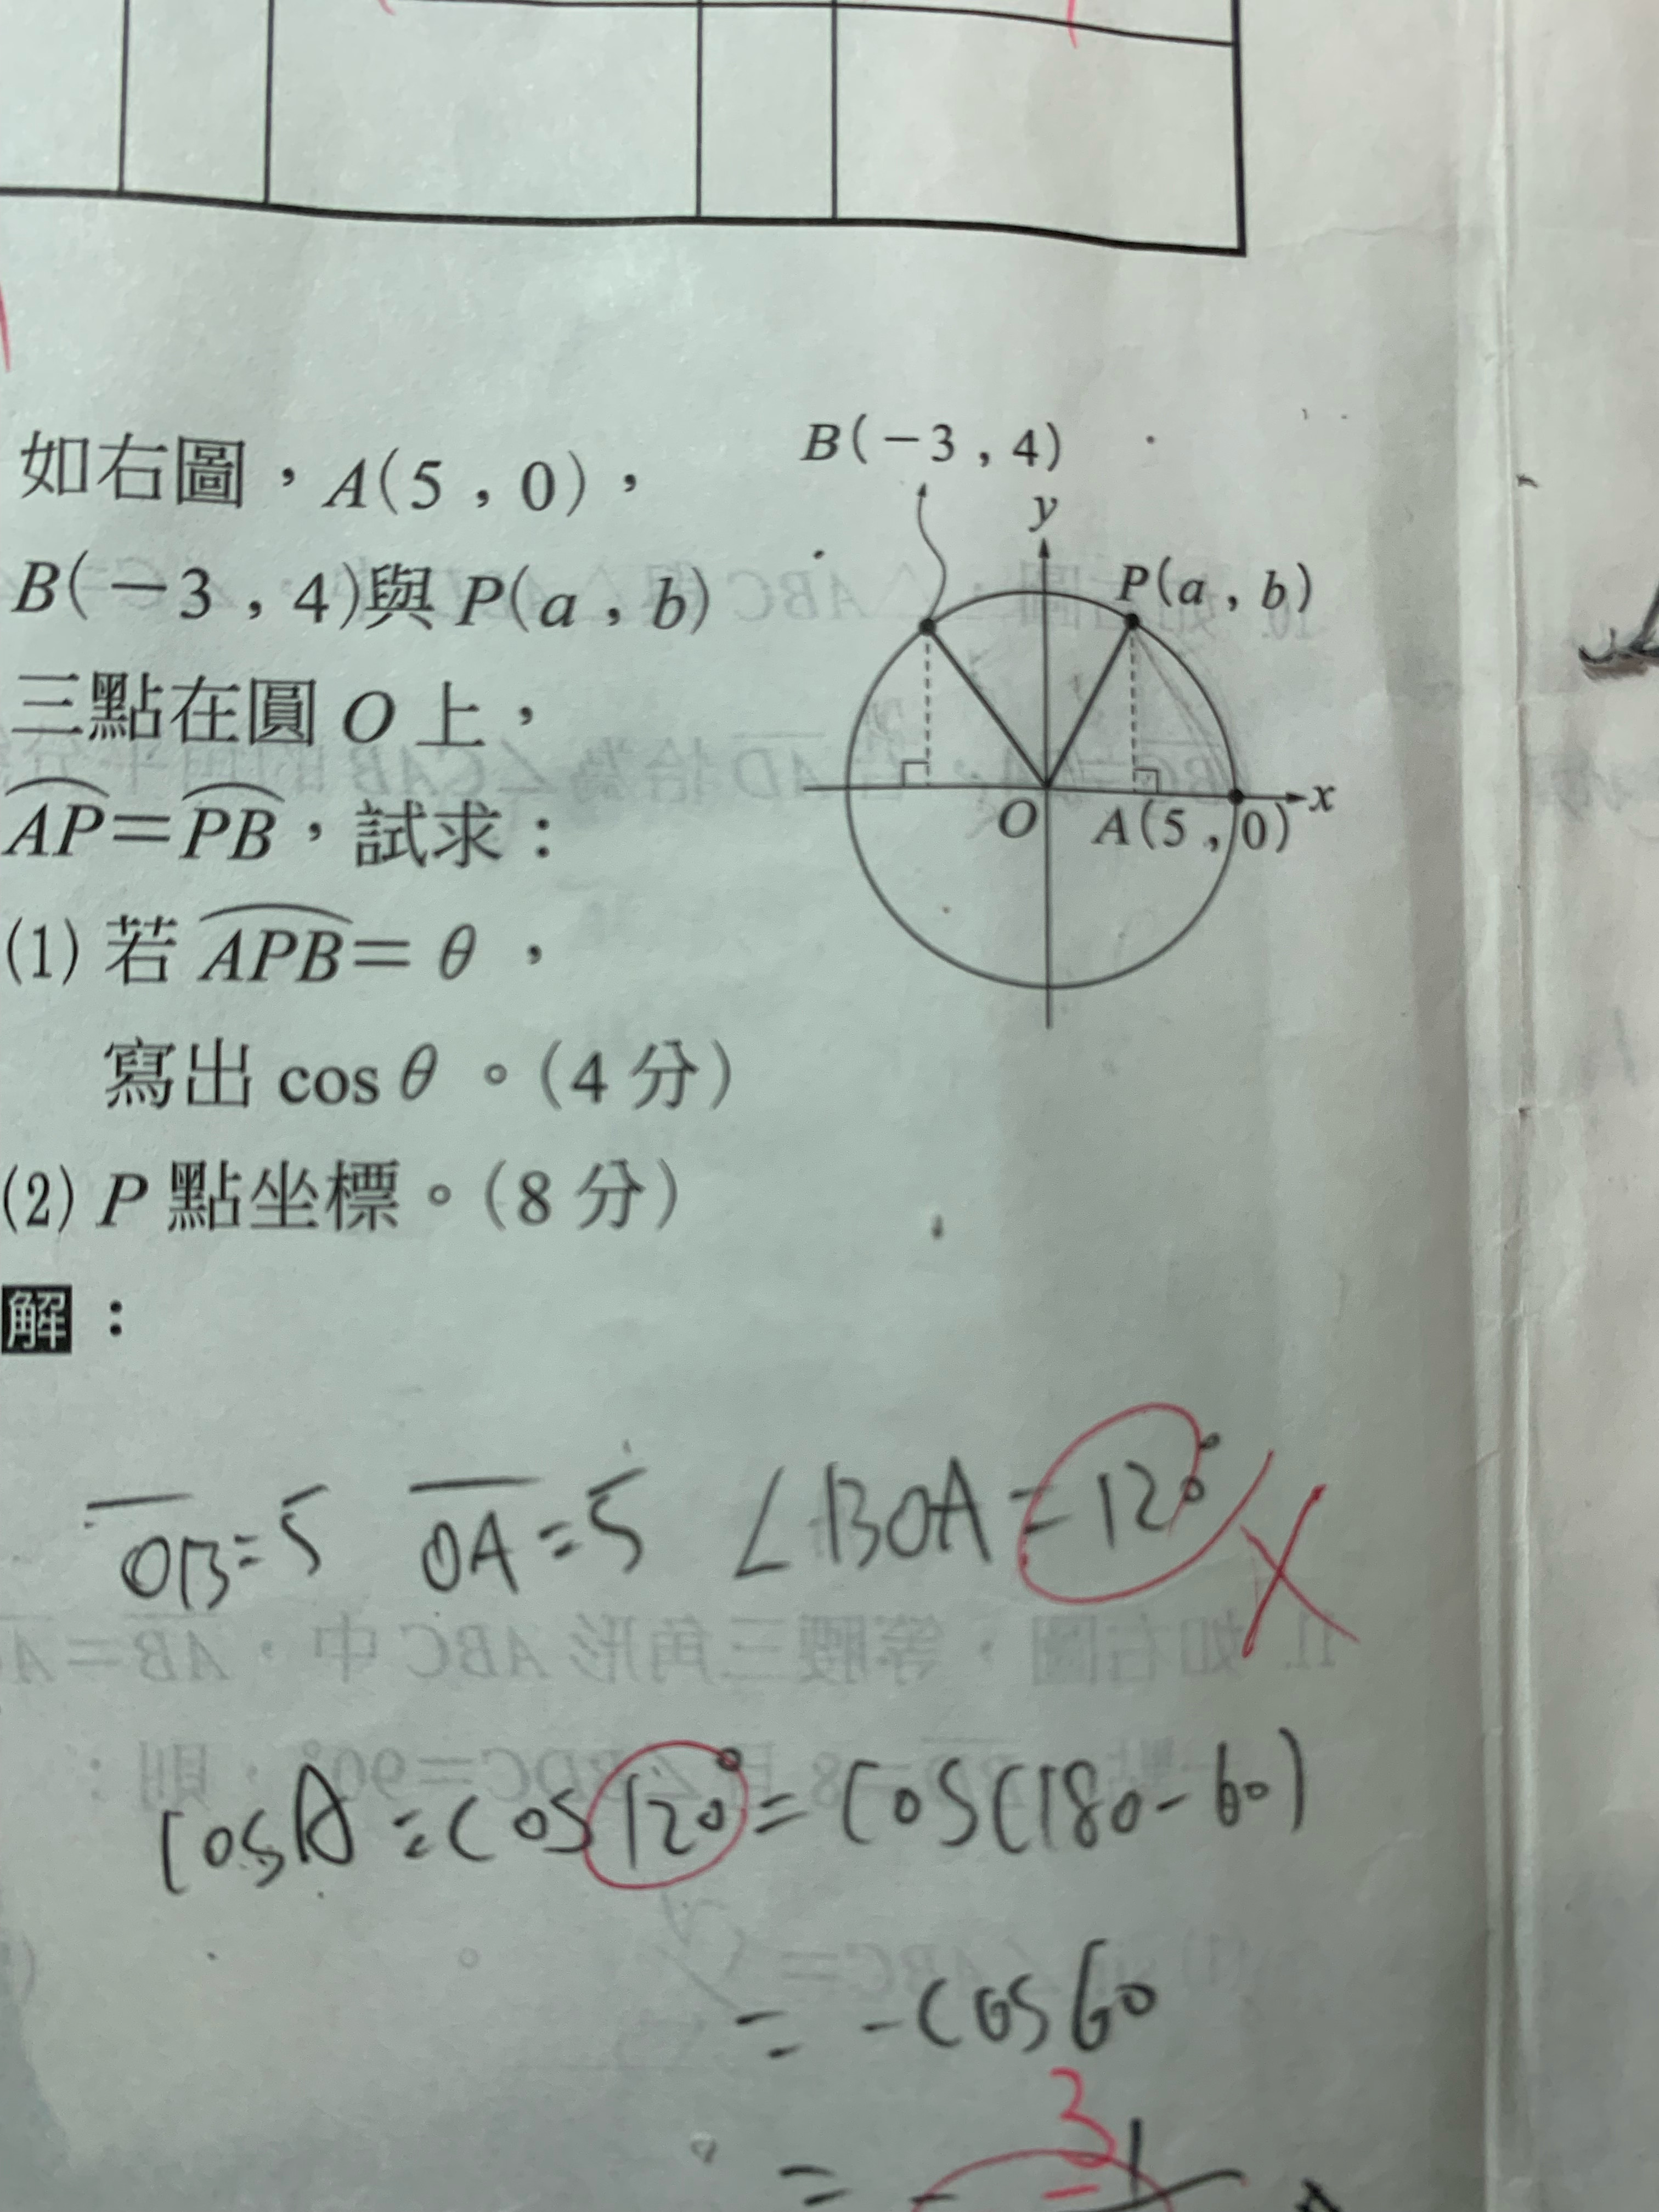 如右圖，A(5，0)，
B(－3，4)與 P(a，b)
三點在圓 O 上，
AP＝PB，試求：
(1) 若 APB＝θ，
寫出 cosθ。(4 分)
(2) P 點坐標。(8 分)
B(－3，4)
y
P(a，b)
O
A(5，0)
x
解：
OB=5 OA=5 ∠BOA=120°
cosA=cos120°=cos(180-60)
=-cos60